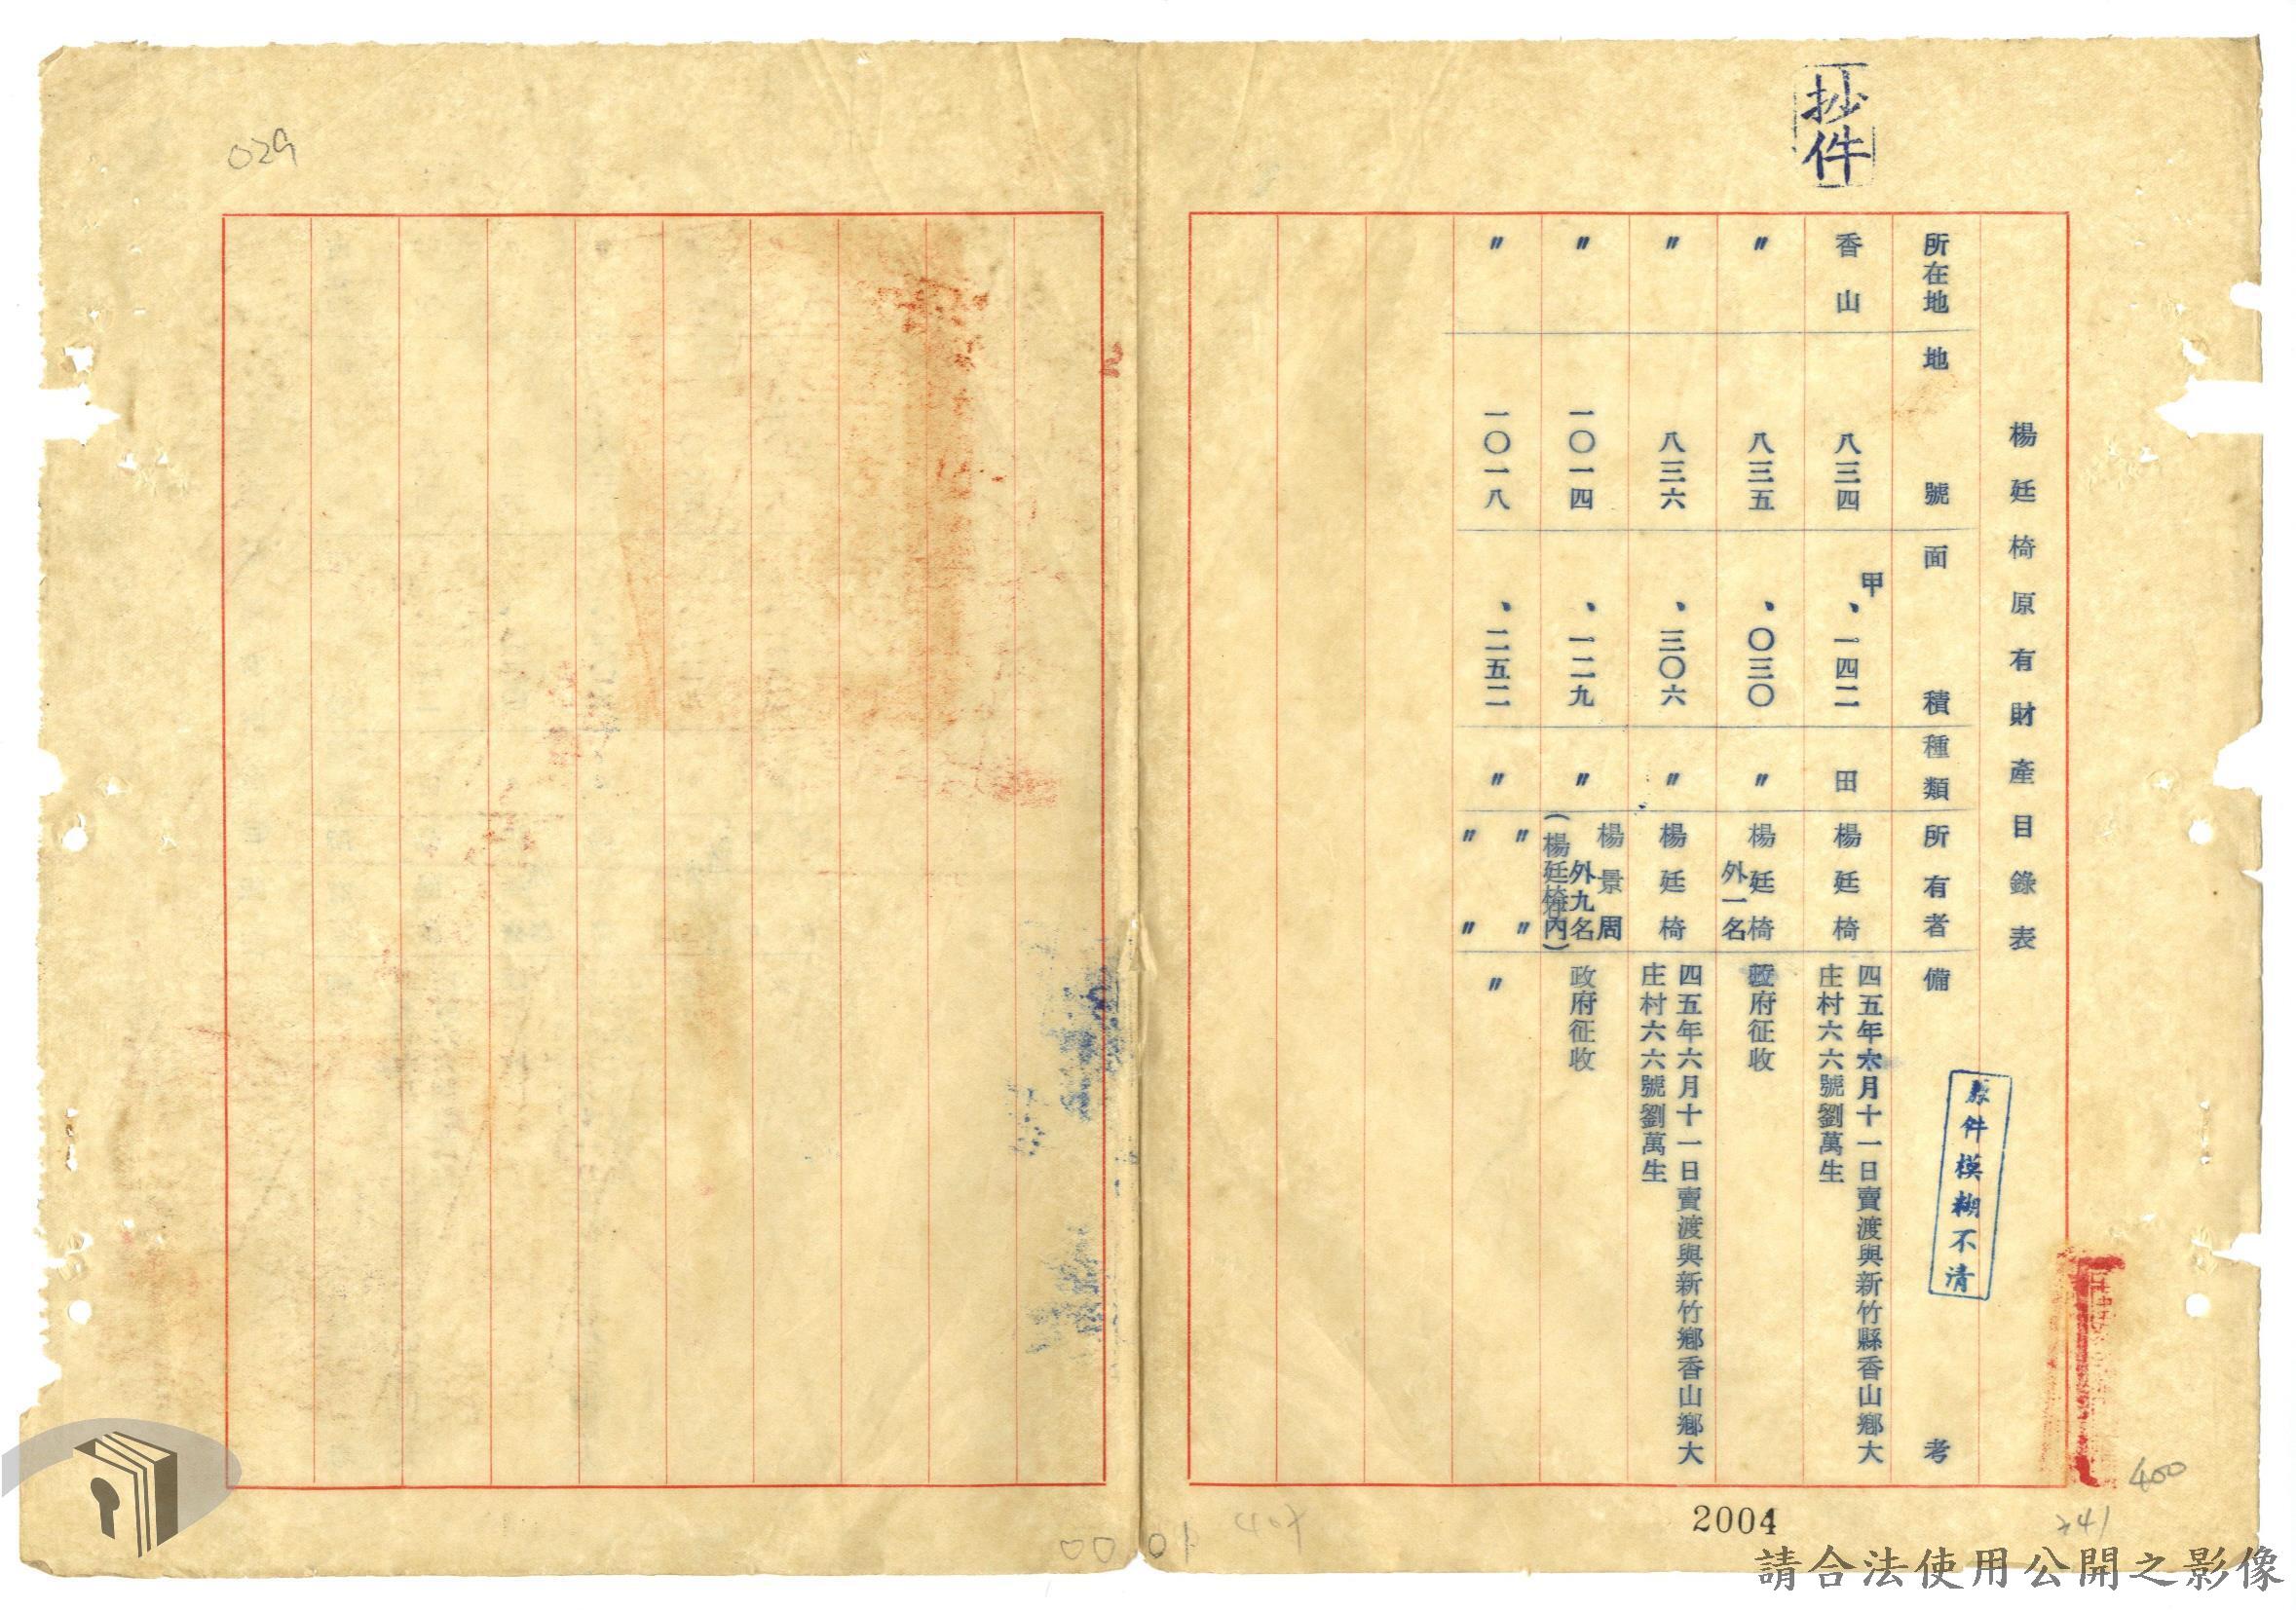 抄件
楊廷椅原有財產目錄表
所在地 地號 面積 種類 所有者 備考
原件模糊不清
香山 八三四 甲、一四二 田 楊廷椅 四五年六月十一日賣渡與新竹縣香山鄉大
庄村六六號劉萬生
〃 八三五 、〇三〇 〃 楊廷椅
外一名 政府征收
〃 八三六 、三〇六 〃 楊廷椅 四五年六月十一日賣渡與新竹鄉香山鄉大
庄村六六號劉萬生
〃 一〇一四 、一二九 〃 楊景周
外九名
(楊廷椅內) 政府征收
〃 一〇一八 、二五二 〃 〃 〃
〃 〃 〃
029
2004
400
241
407
00 01
請合法使用公開之影像